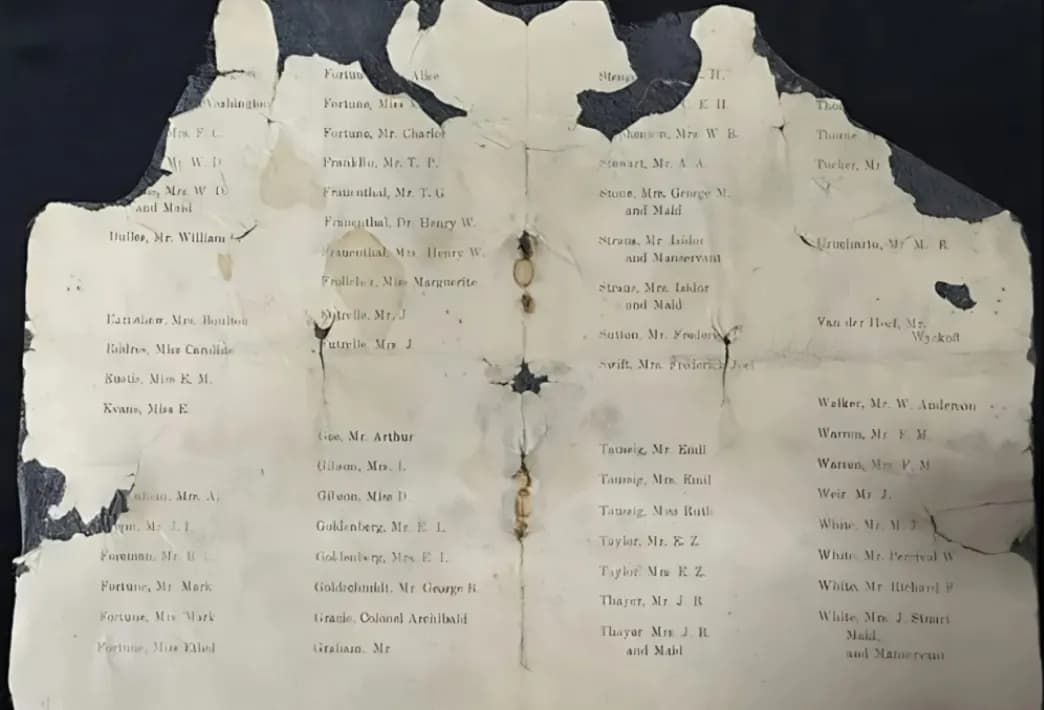 Washington
Mrs. F. C.
Mr. W. D.
Mrs. W. D.
and Maid
Dulles, Mr. William
Earnshaw, Mrs. Boulton
Endres, Miss Caroline
Eustis, Miss E. M.
Evans, Miss E.
Mrs. A.
Mr. J. I.
Foreman, Mr. B. L.
Fortune, Mr. Mark
Fortune, Mrs. Mark
Fortune, Miss Ethel
Alice
Fortune, Miss
Fortune, Mr. Charles
Franklin, Mr. T. P.
Frauenthal, Mr. T. G.
Frauenthal, Dr. Henry W.
Frauenthal, Mrs. Henry W.
Frolicher, Miss Marguerite
Futrelle, Mr. J.
Futrelle, Mrs. J.
Gee, Mr. Arthur
Gibson, Mrs. L.
Gibson, Miss D.
Goldenberg, Mr. E. L.
Goldenberg, Mrs. E. L.
Goldschmidt, Mr. George B.
Gracie, Colonel Archibald
Graham, Mr.
H.
E. H.
Mrs. W. B.
Stewart, Mr. A. A.
Stone, Mrs. George M.
and Maid
Straus, Mr. Isidor
and Manservant
Straus, Mrs. Isidor
and Maid
Sutton, Mr. Frederick
Swift, Mrs. Frederick Joel
Taussig, Mr. Emil
Taussig, Mrs. Emil
Taussig, Miss Ruth
Taylor, Mr. E. Z.
Taylor, Mrs. E. Z.
Thayer, Mr. J. B.
Thayer Mrs. J. B.
and Maid
Thorne
Tucker, Mr.
Uruchurtu, Mr. M. R.
Van der Hoef, Mr.
Wyckoff
Walker, Mr. W. Anderson
Warren, Mr. F. M.
Warren, Mrs. F. M.
Weir Mr. J.
White, Mr. M. J.
White, Mr. Percival W.
White, Mr. Richard F.
White, Mrs. J. Stuart
Maid,
and Manservant